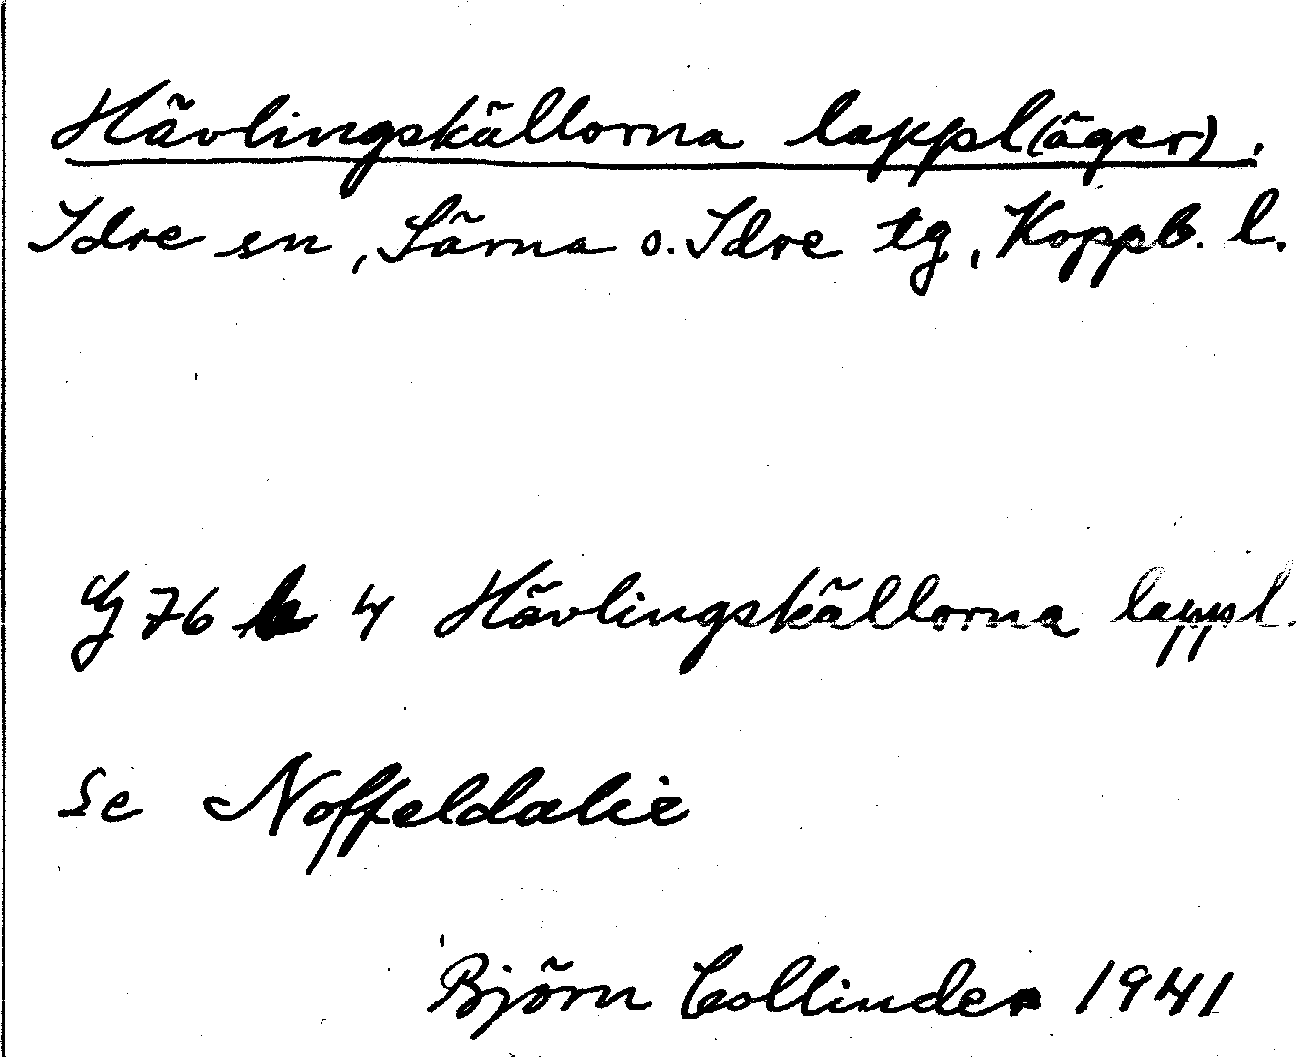 Hävlingskällorna lappl(äger),
Idre sn, Särna o. Idre tg, Koppb. l.
Gj 76 b 4 Hävlingskällorna lappl.
Se Noffeldalie
Björn Collinder 1941